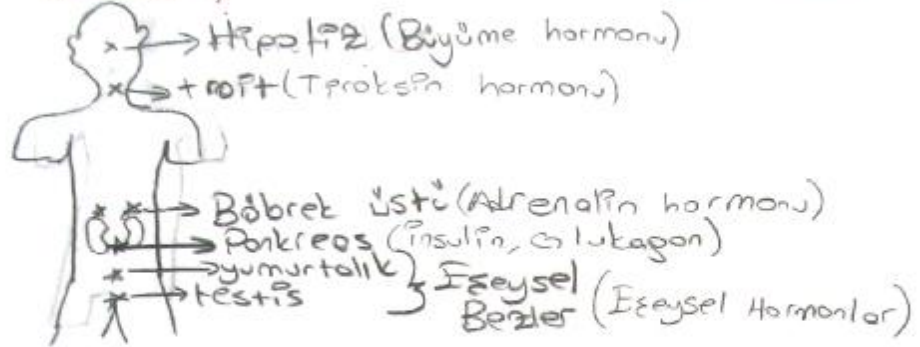 Hipofiz (Büyüme hormonu)
troit (Tiroksin hormonu)
Böbrek üstü (Adrenalin hormonu)
Pankreas (insulin, Glukagon)
yumurtalık
testis
Eşeysel Bezler (Eşeysel Hormonlar)